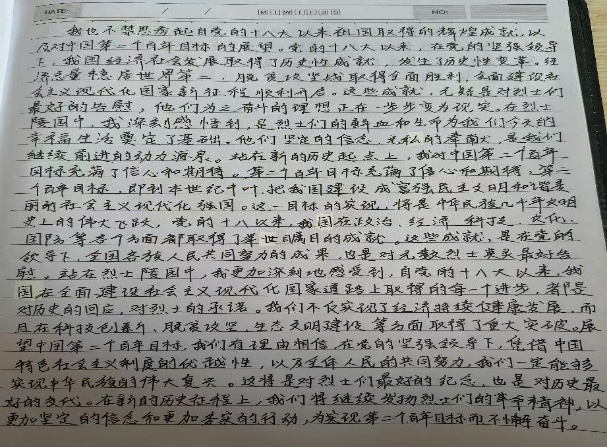 DATE: / / MTWTFSS NO:
我也不禁思考起自党的十八大以来祖国取得的辉煌成就,以
及对中国第二个百年目标的展望。党的十八大以来,在党的坚强领导
下,我国经济社会发展取得了历史性成就,发生了历史性变革。经
济总量稳居世界第二,脱贫攻坚战取得全面胜利,全面建设社
会主义现代化国家新征程顺利开启。这些成就,无疑是对烈士们
最好的告慰,他们为之奋斗的理想正在一步步变为现实。在烈士
陵园中,我深刻感悟到,是烈士们的鲜血和生命为我们今天的
幸福生活奠定了基础。他们坚定的信念,无私的奉献,是我们
继续前进的动力源泉。站在新的历史起点上,我对中国第二个百年
目标充满了信心和期待。第二个百年目标充满了信心和期待,第二
个百年目标,即到本世纪中叶,把我国建设成富强民主文明和谐美
丽的社会主义现代化强国。这一目标的实现,将是中华民族几千年文明
史上的伟大飞跃,党的十八大以来,我国在政治、经济、科技、文化、
国防等各个方面都取得了举世瞩目的成就。这些成就,是在党的
领导下,全国各族人民共同努力的成果,也是对无数烈士英灵最好告
慰。站在烈士陵园中,我更加深刻地感受到,自党的十八大以来,我
国在全面建设社会主义现代化国家道路上取得的每一个进步,都是
对历史的回应,对烈士的承诺。我们不仅实现了经济持续健康发展,而
且在科技创新、脱贫攻坚、生态文明建设等方面取得了重大突破。展
望中国第二个百年目标,我们有理由相信,在党的坚强领导下,凭借中国
特色社会主义制度的优越性,以及全体人民的共同努力,我们一定能够
实现中华民族的伟大复兴。这将是对烈士们最好的纪念,也是对历史最
好的交代。在新的历史征程上,我们将继续发扬烈士们的革命精神,以
更加坚定的信念和更加务实的行动,为实现第二个百年目标而不懈奋斗。